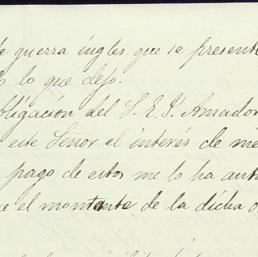 de guerra ingles que se present
lo que dejo.
bligacion del S. E. P. Amador
este Señor el interés de me
pago de estos me lo ha aut
ue el montante de la dicha o